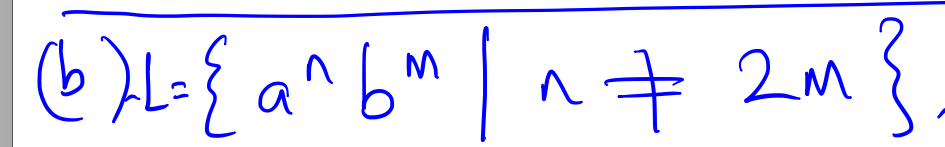 (b) L = { aⁿ bᵐ | n ≠ 2m },